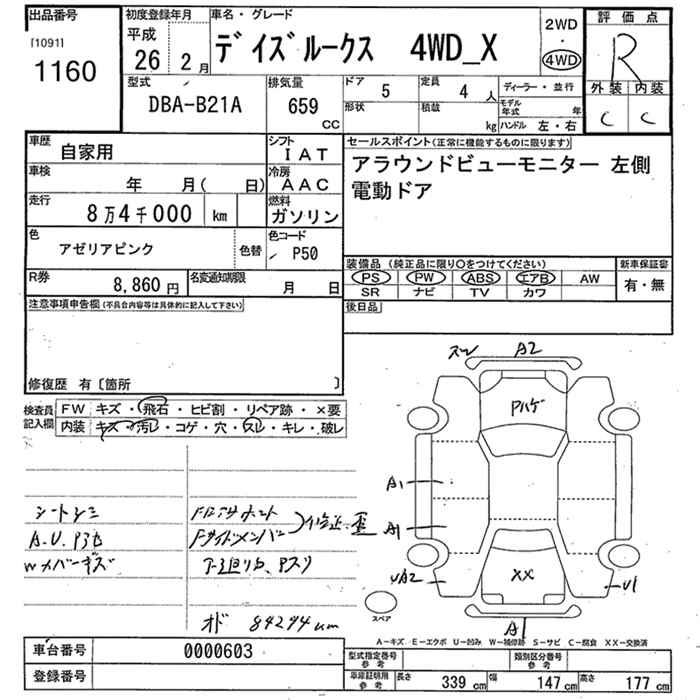 出品番号
[1091]
1160
初度登録年月
平成
26 2 月
車名・グレード
デイズルークス 4WD_X
2WD
・
4WD
評価点
R
外装 内装
C C
型式
DBA-B21A
排気量
659
CC
ドア
5
定員
4 人
形状
積載
kg
ディーラー・並行
モデル年式 年
ハンドル 左・右
車歴
自家用
シフト
I A T
車検
年 月( 日)
冷房
A A C
走行
8万4千000 km
燃料
ガソリン
色
アゼリアピンク
色替
色コード
P50
R券
8,860 円
名変通知期限
月 日
セールスポイント(正常に機能するものに限ります)
アラウンドビューモニター 左側
電動ドア
装備品 (純正品に限り○をつけてください)
PS PW ABS エアB AW
SR ナビ TV カワ
新車保証書
有・無
後日品
注意事項申告欄(不具合内容等は具体的に記入して下さい)
修復歴 有〔箇所 〕
検査員
記入欄
FW キズ・飛石・ヒビ割・リペア跡・×要
内装 キズ・汚レ・コゲ・穴・スレ・キレ・破レ
シートシミ
Wメバーキズ
Fサイドメンバー
修正、歪
オド 84294km
A2
Pハゲ
A1
A1
UA2
XX
U1
A1
スペア
A−キズ E−エクボ U−凹み W−補修跡 S−サビ C−腐食 XX−交換済
車台番号
0000603
登録番号
型式指定番号
参考
類別区分番号
参考
車庫証明用
参考
長さ 339 cm 幅 147 cm 高さ 177 cm